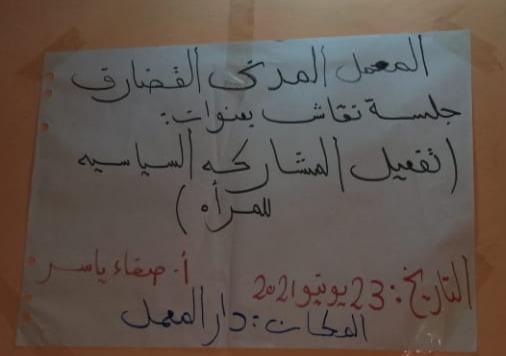 المعمل المدني القضارف
جلسة نقاش بعنوان:
(تفعيل المشاركه السياسيه
للمرأه)
أ. صفاء ياسر
التاريخ: 23 يونيو 2021
المكان: دار المعمل